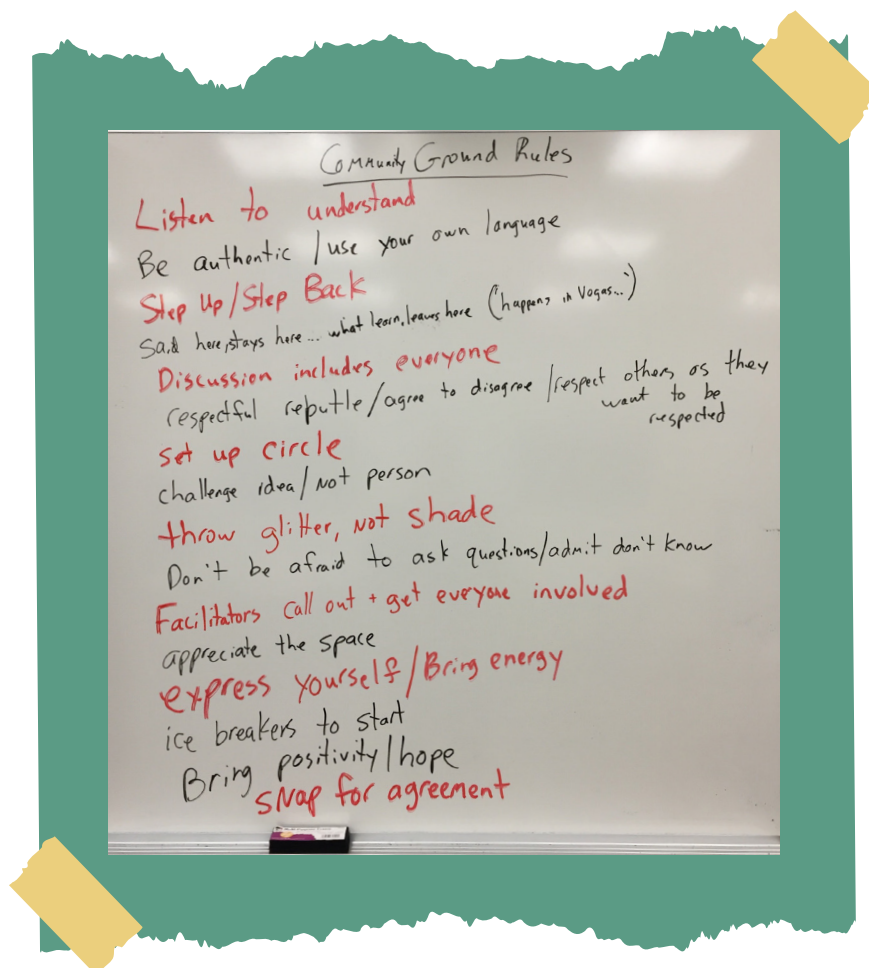 Community Ground Rules
Listen to understand
Be authentic / use your own language
Step Up / Step Back
Said here, stays here... what learn, leaves here ("happens in Vegas...")
Discussion includes everyone
respectful reputtle / agree to disagree / respect others as they
want to be
respected
set up circle
challenge idea / Not person
throw glitter, Not shade
Don't be afraid to ask questions/admit don't know
Facilitators call out + get everyone involved
appreciate the space
express yourself / Bring energy
ice breakers to start
Bring positivity / hope
SNap for agreement